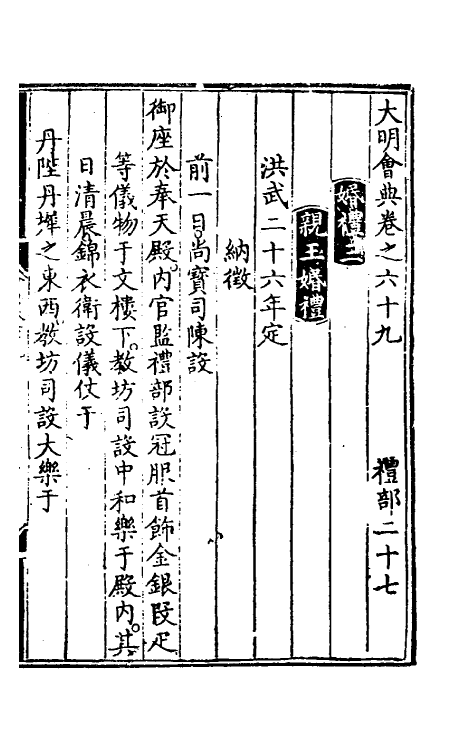 大明會典卷之六十九 禮部二十七
婚禮三
親王婚禮
洪武二十六年定
納徵
前一日。尚寶司陳設
御座於奉天殿。内官監禮部設冠服首飾金銀段疋
等儀物于文樓下。教坊司設中和樂于殿内。其
日清晨錦衣衛設儀仗于
丹陛丹墀之東西。教坊司設大樂于